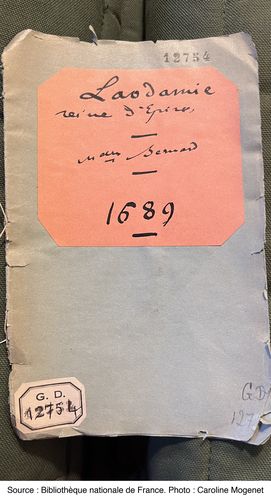 12754
Laodamie
reine d'Epire,
Mdlle Bernard
1689
G. D.
12754
G D
127
Source : Bibliothèque nationale de France. Photo : Caroline Mogenet